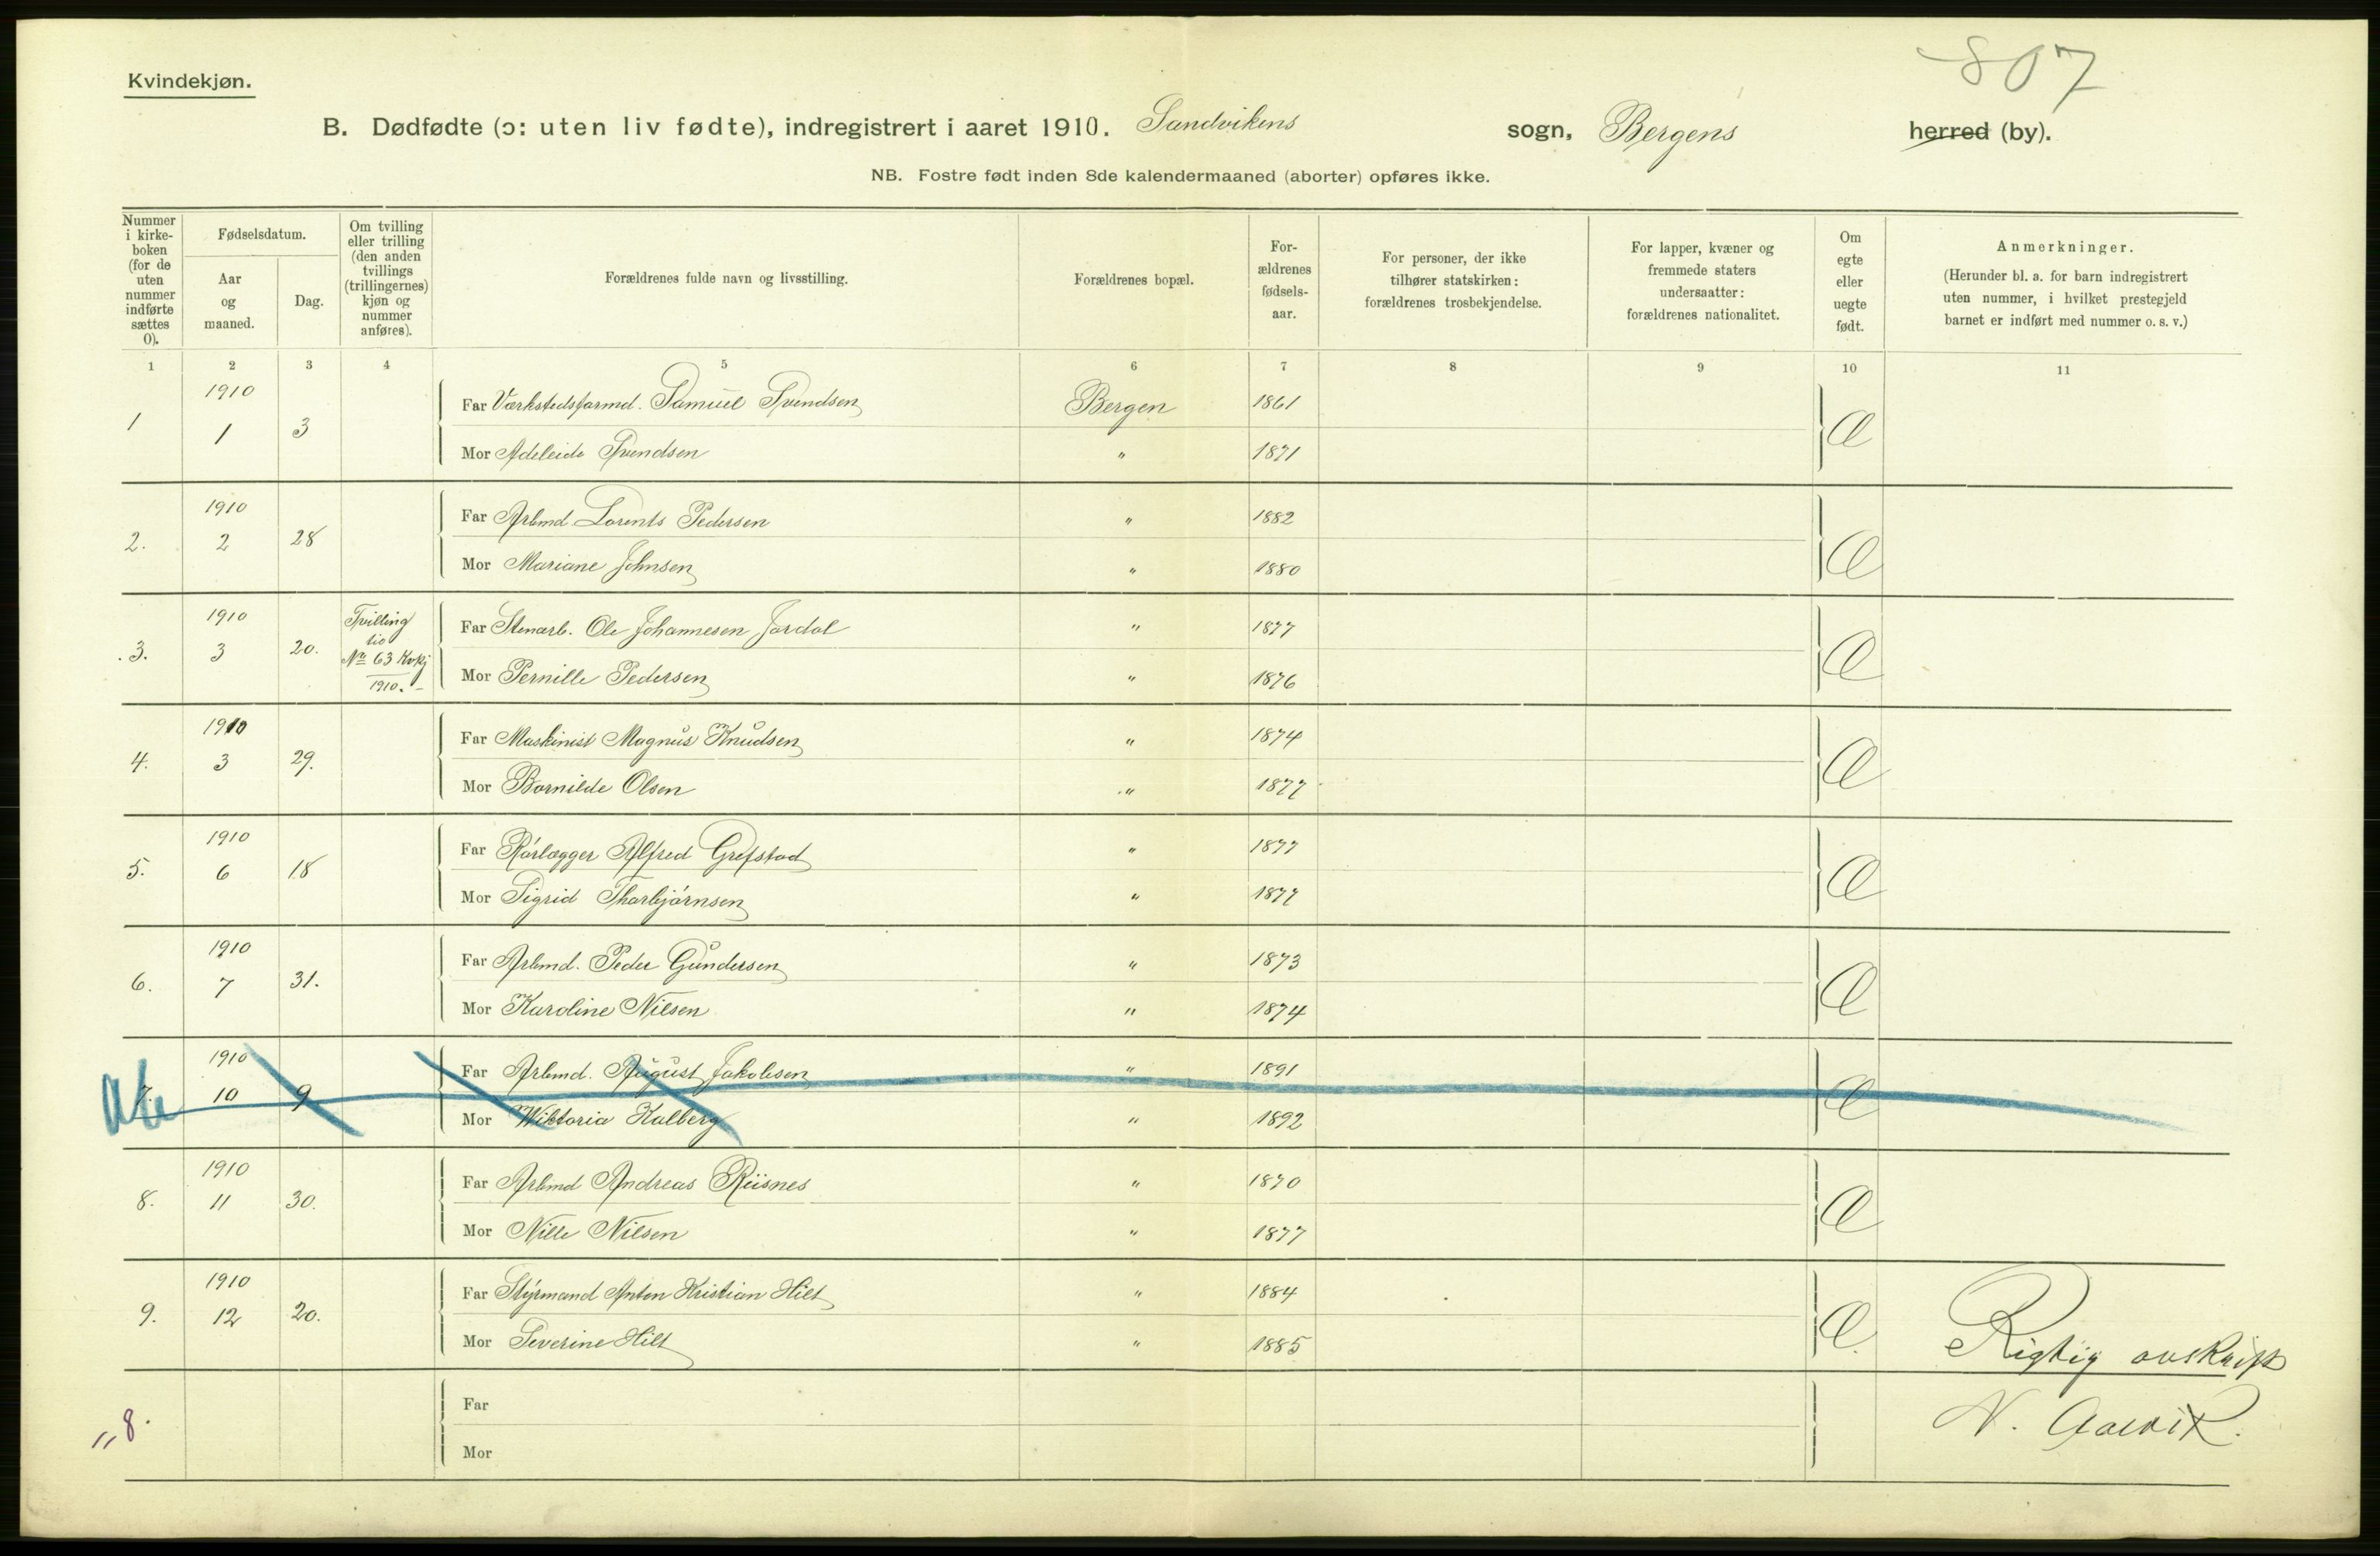 807
Kvindekjøn.
B. Dødfødte (ɔ: uten liv fødte), indregistrert i aaret 1910. Sandvikens sogn, Bergens herred (by).
NB. Fostre født inden 8de kalendermaaned (aborter) opføres ikke.
Nummer i kirke-boken (for de uten nummer indførte sættes 0).
Fødselsdatum.
Aar og maaned.
Dag.
Om tvilling eller trilling (den anden tvillings (trillingernes) kjøn og nummer anføres).
Forældrenes fulde navn og livsstilling.
Forældrenes bopæl.
For-ældrenes fødsels-aar.
For personer, der ikke tilhører statskirken: forældrenes trosbekjendelse.
For lapper, kvæner og fremmede staters undersaatter: forældrenes nationalitet.
Om egte eller uegte født.
Anmerkninger.
(Herunder bl. a. for barn indregistrert uten nummer, i hvilket prestegjeld barnet er indført med nummer o. s. v.)
1 2 3 4 5 6 7 8 9 10 11
1 1910 1 3 Far Værkstedsformd. Samuel Svendsen Bergen 1861 Æ
Mor Adeleide Svendsen " 1871
2. 1910 2 28 Far Arbmd. Lorents Pedersen " 1882 Æ
Mor Mariane Johnsen " 1880
3. 1910 3 20. Tvilling til No 63 Kvkj 1910. Far Stenarb. Ole Johannesen Jordal " 1877 Æ
Mor Pernille Pedersen " 1876
4. 1910 3 29. Far Maskinist Magnus Knudsen " 1874 Æ
Mor Bornilde Olsen " 1877
5. 1910 6 18 Far Rørlægger Alfred Grefstad " 1877 Æ
Mor Sigrid Thorbjørnsen " 1877
6. 1910 7 31. Far Arbmd. Peder Gundersen " 1873 Æ
Mor Karoline Nilsen " 1874
7. 1910 10 9 Far Arbmd. August Jakobsen " 1891 Æ
Mor Wiktoria Kalberg " 1892
8. 1910 11 30. Far Arbmd Andreas Riisnes " 1870 Æ
Mor Nille Nilsen " 1877
9. 1910 12 20. Far Styrmand Anton Kristian Hilt " 1884 Æ.
Mor Severine Hilt " 1885
Rigtig avskrift
Far
N. Aalvik.
„8.
Mor